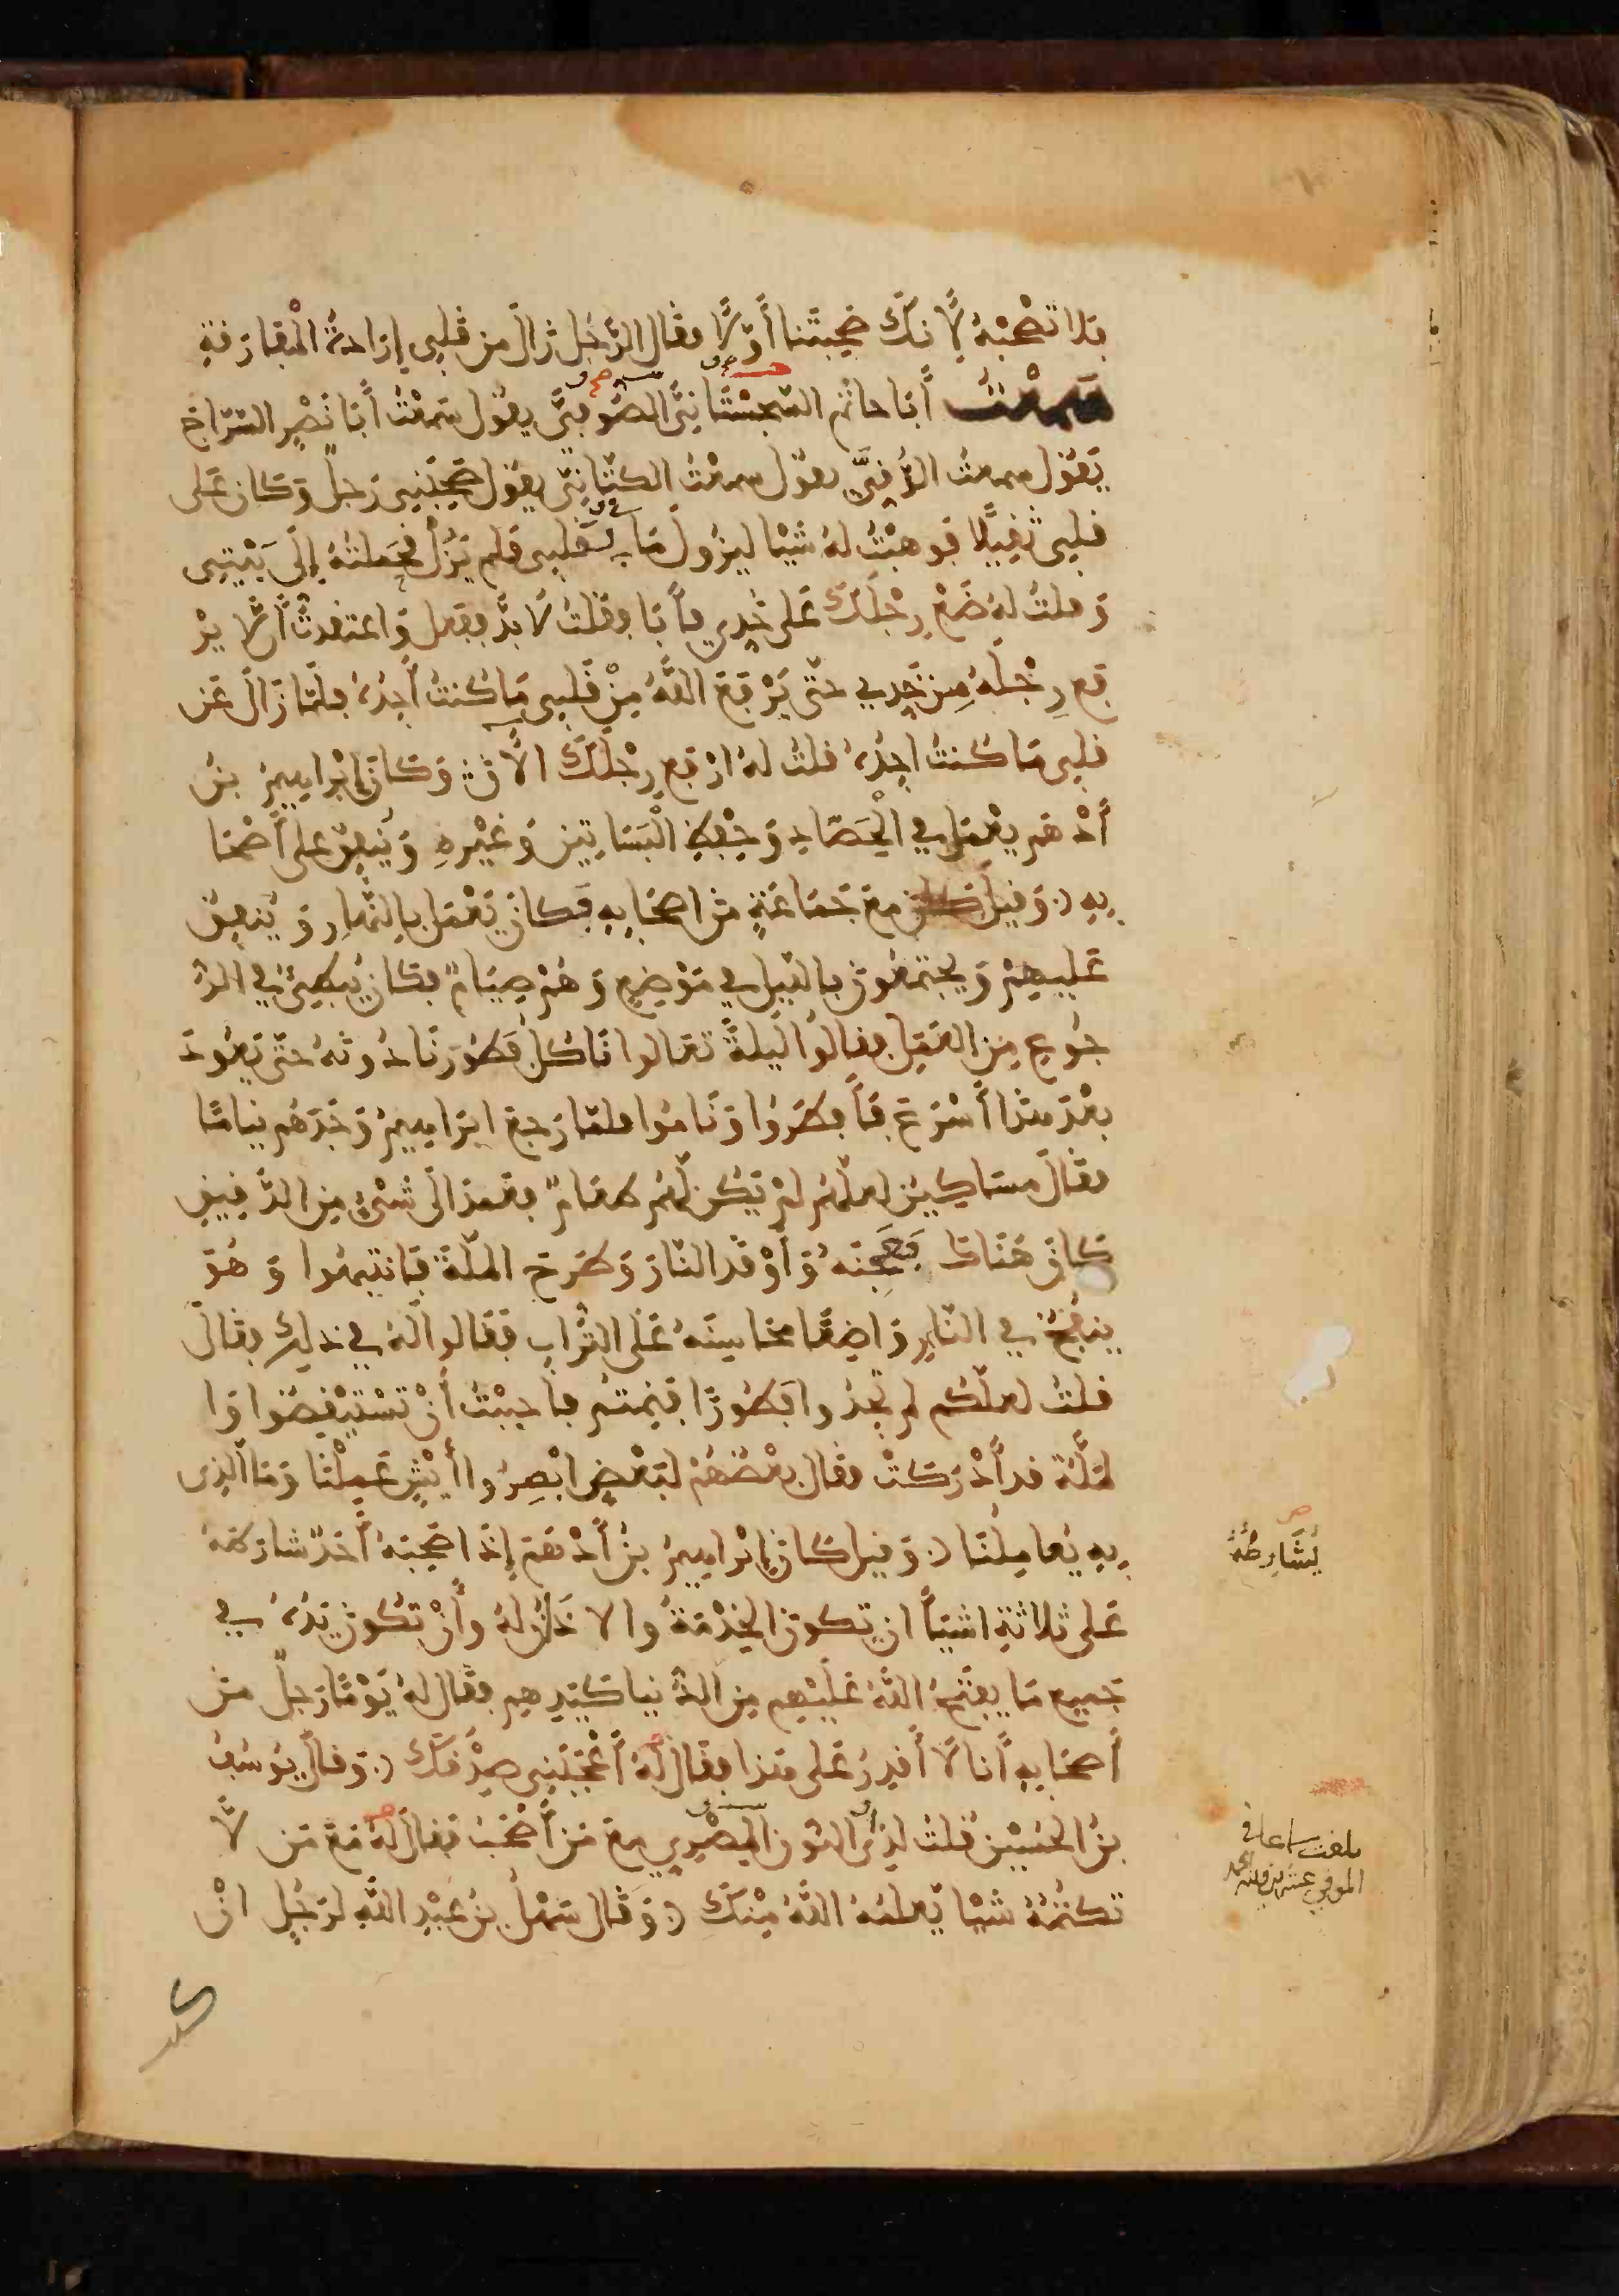 فلا تصْحَبْهُ لأنك صَحِبْتَنا أوّلًا فقال الرَّجُل زالَ من قلبي إرادةُ المْفارَقةِ
سَمِعْتُ أبَا حاتم السّجِسْتَانيَّ الصُّوفيَّ يقُول سَمعْتُ أبَا نَصْرٍ السَّرّاجَ
يَقوُل سمعتُ الرُّقيَّ يقوُل سمعْتُ الكتَّانيَّ يقوُل صَحِبَنِي رَجلٌ وَكان عَلى
قلبي ثقِيًلا فوهبْتُ لهُ شَيْا ليزُول مَا بقَلبي فلم يَزُلْ فحَملتُهُ إلَى بَيْتِي
وَقلتُ لهُ ضَعْ رِجْلَكَ عَلى خَدِّي فأبَا فقلتُ لَا بُدَّ ففعل وَاعتقدتُ ألَّا يرْ
فع رِجْلَهُ مِن خَدِي حتَّى يَرْفعَ اللَّهُ مِنْ قَلبي مَا كُنتُ أجِدُهُ فلمّا زَالَ عَن
قلبي مَا كُنتُ اجِدُهُ قلتُ لهُ ارْفع رِجْلَكَ الأَنَ وَكَانَ إبْراهِيمُ بنُ
أدْهَم يعْمَل في الحَصَادِ وَحِفْظِ الْبَسَاتِين وَغيْرهِ وَيُنفِقُ على أصْحَا
بِهِ وَقيلَ كانَ معَ جَمَاعَةٍ من اصْحَابِهِ فَكانَ يَعْمَل بالنّهارِ وَيُنفِقُ
عَليهِمْ وَيجتمعُونَ بالليل في مَوْضِعٍ وَهُمْ صِيَامٌ فكان يُبطِئُ في الرُّ
جُوعِ مِن العَمَل فقالوا ليلةً تعَالوا نَاكل فطُورَنَا دُونهُ حتَّى يَعُودَ
بعْدَ هَذا أسْرَعَ فأفطَرُوا وَنَامُوا فلمَّا رَجعَ ابرَاهِيمُ وَجَدَهُم نِيامًا
فقَالَ مسَاكِينُ لعلَّهُمْ لَمْ يَكُن لَهُم طعَامٌ فعَمدَ الَى شَىْءٍ مِن الدَّقِيقِ
كانَ هَنَاكَ فَعَجَنَهُ وَأوْقَدَ النَّارَ وَطَرحَ المَلَّةَ فانتبهُوا وَهُوَ
ينفُخُ في النَّارِ وَاضِعًا محَاسِنَهُ عَلَى التُّرَابِ فقَالوا لهُ في ذلِكَ فقالَ
قلتُ لعلَّكُم لم تجِدُوا فطُورًا فنِمتُم فاحببْتُ أنْ تَسْتَيْقِظُوا وَا
لمَلَّةُ قد أدْرَكتْ فقال بعْضُهُمْ لبَعْضٍ ابْصِرُوا أيْشٍ عَمِلْنَا وَمَا الّذِي
بِهِ يُعامِلُنَا وَقيل كانَ إبْراهِيمُ بنُ أدْهَمَ إذَا صَحِبَهُ أحَدٌ شارَطَهُ
عَلى ثلاثَةِ اشيَاً ان تكونَ الخِدْمَةُ والاذَانُ لهُ وأنْ تكُونَ يَدُهُ في
جَميع مَا يفتَحُ اللَّهُ عَلَيْهِم مِن الدُّنيا كيَدِهِم فقَال لهُ يَوْمًا رَجلٌ من
أصحَابِهِ أنا لَا أقدِرُ عَلى هَذا فقَالَ لهُ أعْجَبَنِي صِدْقكَ وَقالَ يوُسُفُ
بنُ الحُسَيْن قلتُ لِذِي النُّونِ المِصْرِي معَ مَن أصْحَبُ فقالَ لهُ مَعَ مَن لَّا
تكتُمُهُ شَيْا يَعلمُهُ اللَّهُ مِنْكَ وَقَال سَهْلُ بنُ عَبْدِ اللَّهِ لرَجُلٍ انْ
يُشَارِطُهُ
بلغت سماعا في